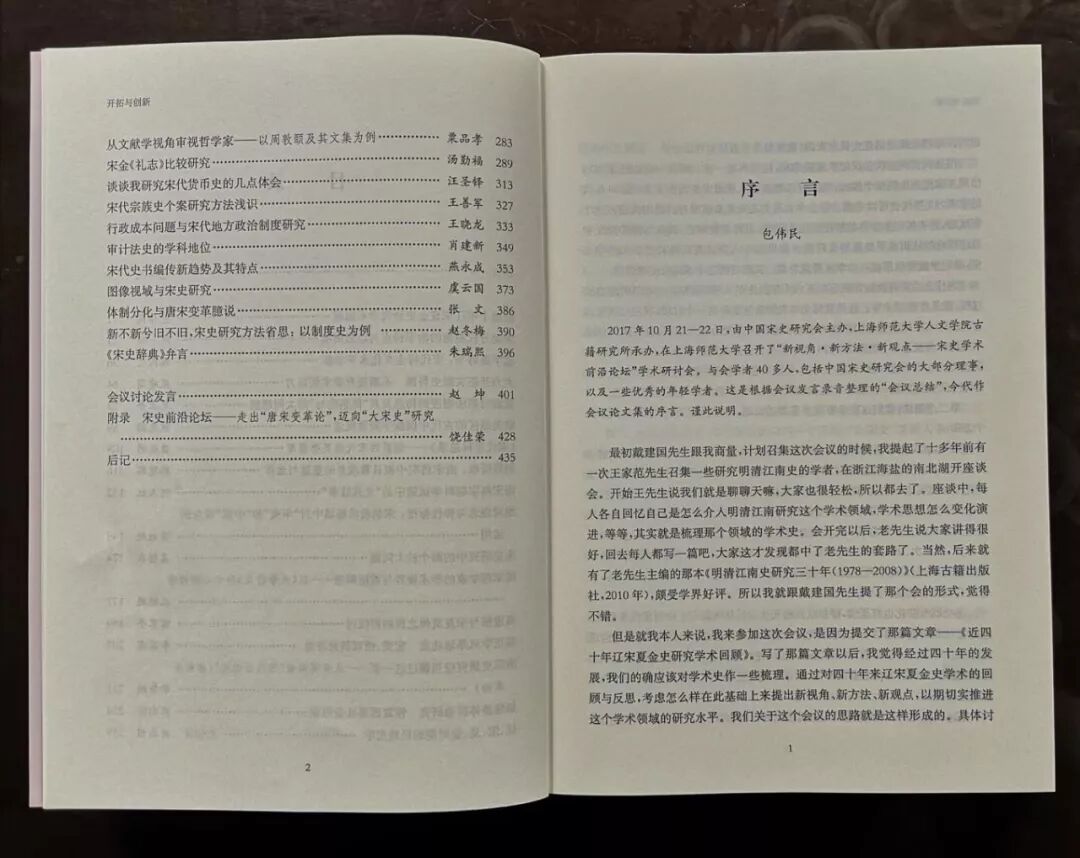 开拓与创新
从文献学视角审视哲学家——以周敦颐及其文集为例 粟品孝 283
宋金《礼志》比较研究 汤勤福 289
谈谈我研究宋代货币史的几点体会 汪圣铎 313
宋代宗族史个案研究方法浅识 王善军 327
行政成本问题与宋代地方政治制度研究 王晓龙 333
审计法史的学科地位 肖建新 349
宋代史书编传新趋势及其特点 燕永成 353
图像视域与宋史研究 虞云国 373
体制分化与唐宋变革臆说 张文 386
新不新兮旧不旧,宋史研究方法省思:以制度史为例 赵冬梅 390
《宋史辞典》弁言 朱瑞熙 396
会议讨论发言 赵坤 401
附录 宋史前沿论坛——走出“唐宋变革论”,迈向“大宋史”研究
饶佳荣 428
后记 435
2
序 言
包伟民
2017年10月21—22日,由中国宋史研究会主办,上海师范大学人文学院古
籍研究所承办,在上海师范大学召开了“新视角·新方法·新观点——宋史学术
前沿论坛”学术研讨会。与会学者40多人,包括中国宋史研究会的大部分理事,
以及一些优秀的年轻学者。这是根据会议发言录音整理的“会议总结”,今代作
会议论文集的序言。谨此说明。
最初戴建国先生跟我商量,计划召集这次会议的时候,我提起了十多年前有
一次王家范先生召集一些研究明清江南史的学者,在浙江海盐的南北湖开座谈
会。开始王先生说我们就是聊聊天嘛,大家也很轻松,所以都去了。座谈中,每
人各自回忆自己是怎么介入明清江南研究这个学术领域,学术思想怎么变化演
进,等等,其实就是梳理那个领域的学术史。会开完以后,老先生说大家讲得很
好,回去每人都写一篇吧,大家这才发现都中了老先生的套路了。当然,后来就
有了老先生主编的那本《明清江南史研究三十年(1978—2008)》(上海古籍出版
社,2010年),颇受学界好评。所以我就跟戴建国先生提了那个会的形式,觉得
不错。
但是就我本人来说,我来参加这次会议,是因为提交了那篇文章——《近四
十年辽宋夏金史研究学术回顾》。写了那篇文章以后,我觉得经过四十年的发
展,我们的确应该对学术史作一些梳理。通过对四十年来辽宋夏金史学术的回
顾与反思,考虑怎么样在此基础上来提出新视角、新方法、新观点,以期切实推进
这个学术领域的研究水平。我们关于这个会议的思路就是这样形成的。具体讨
1